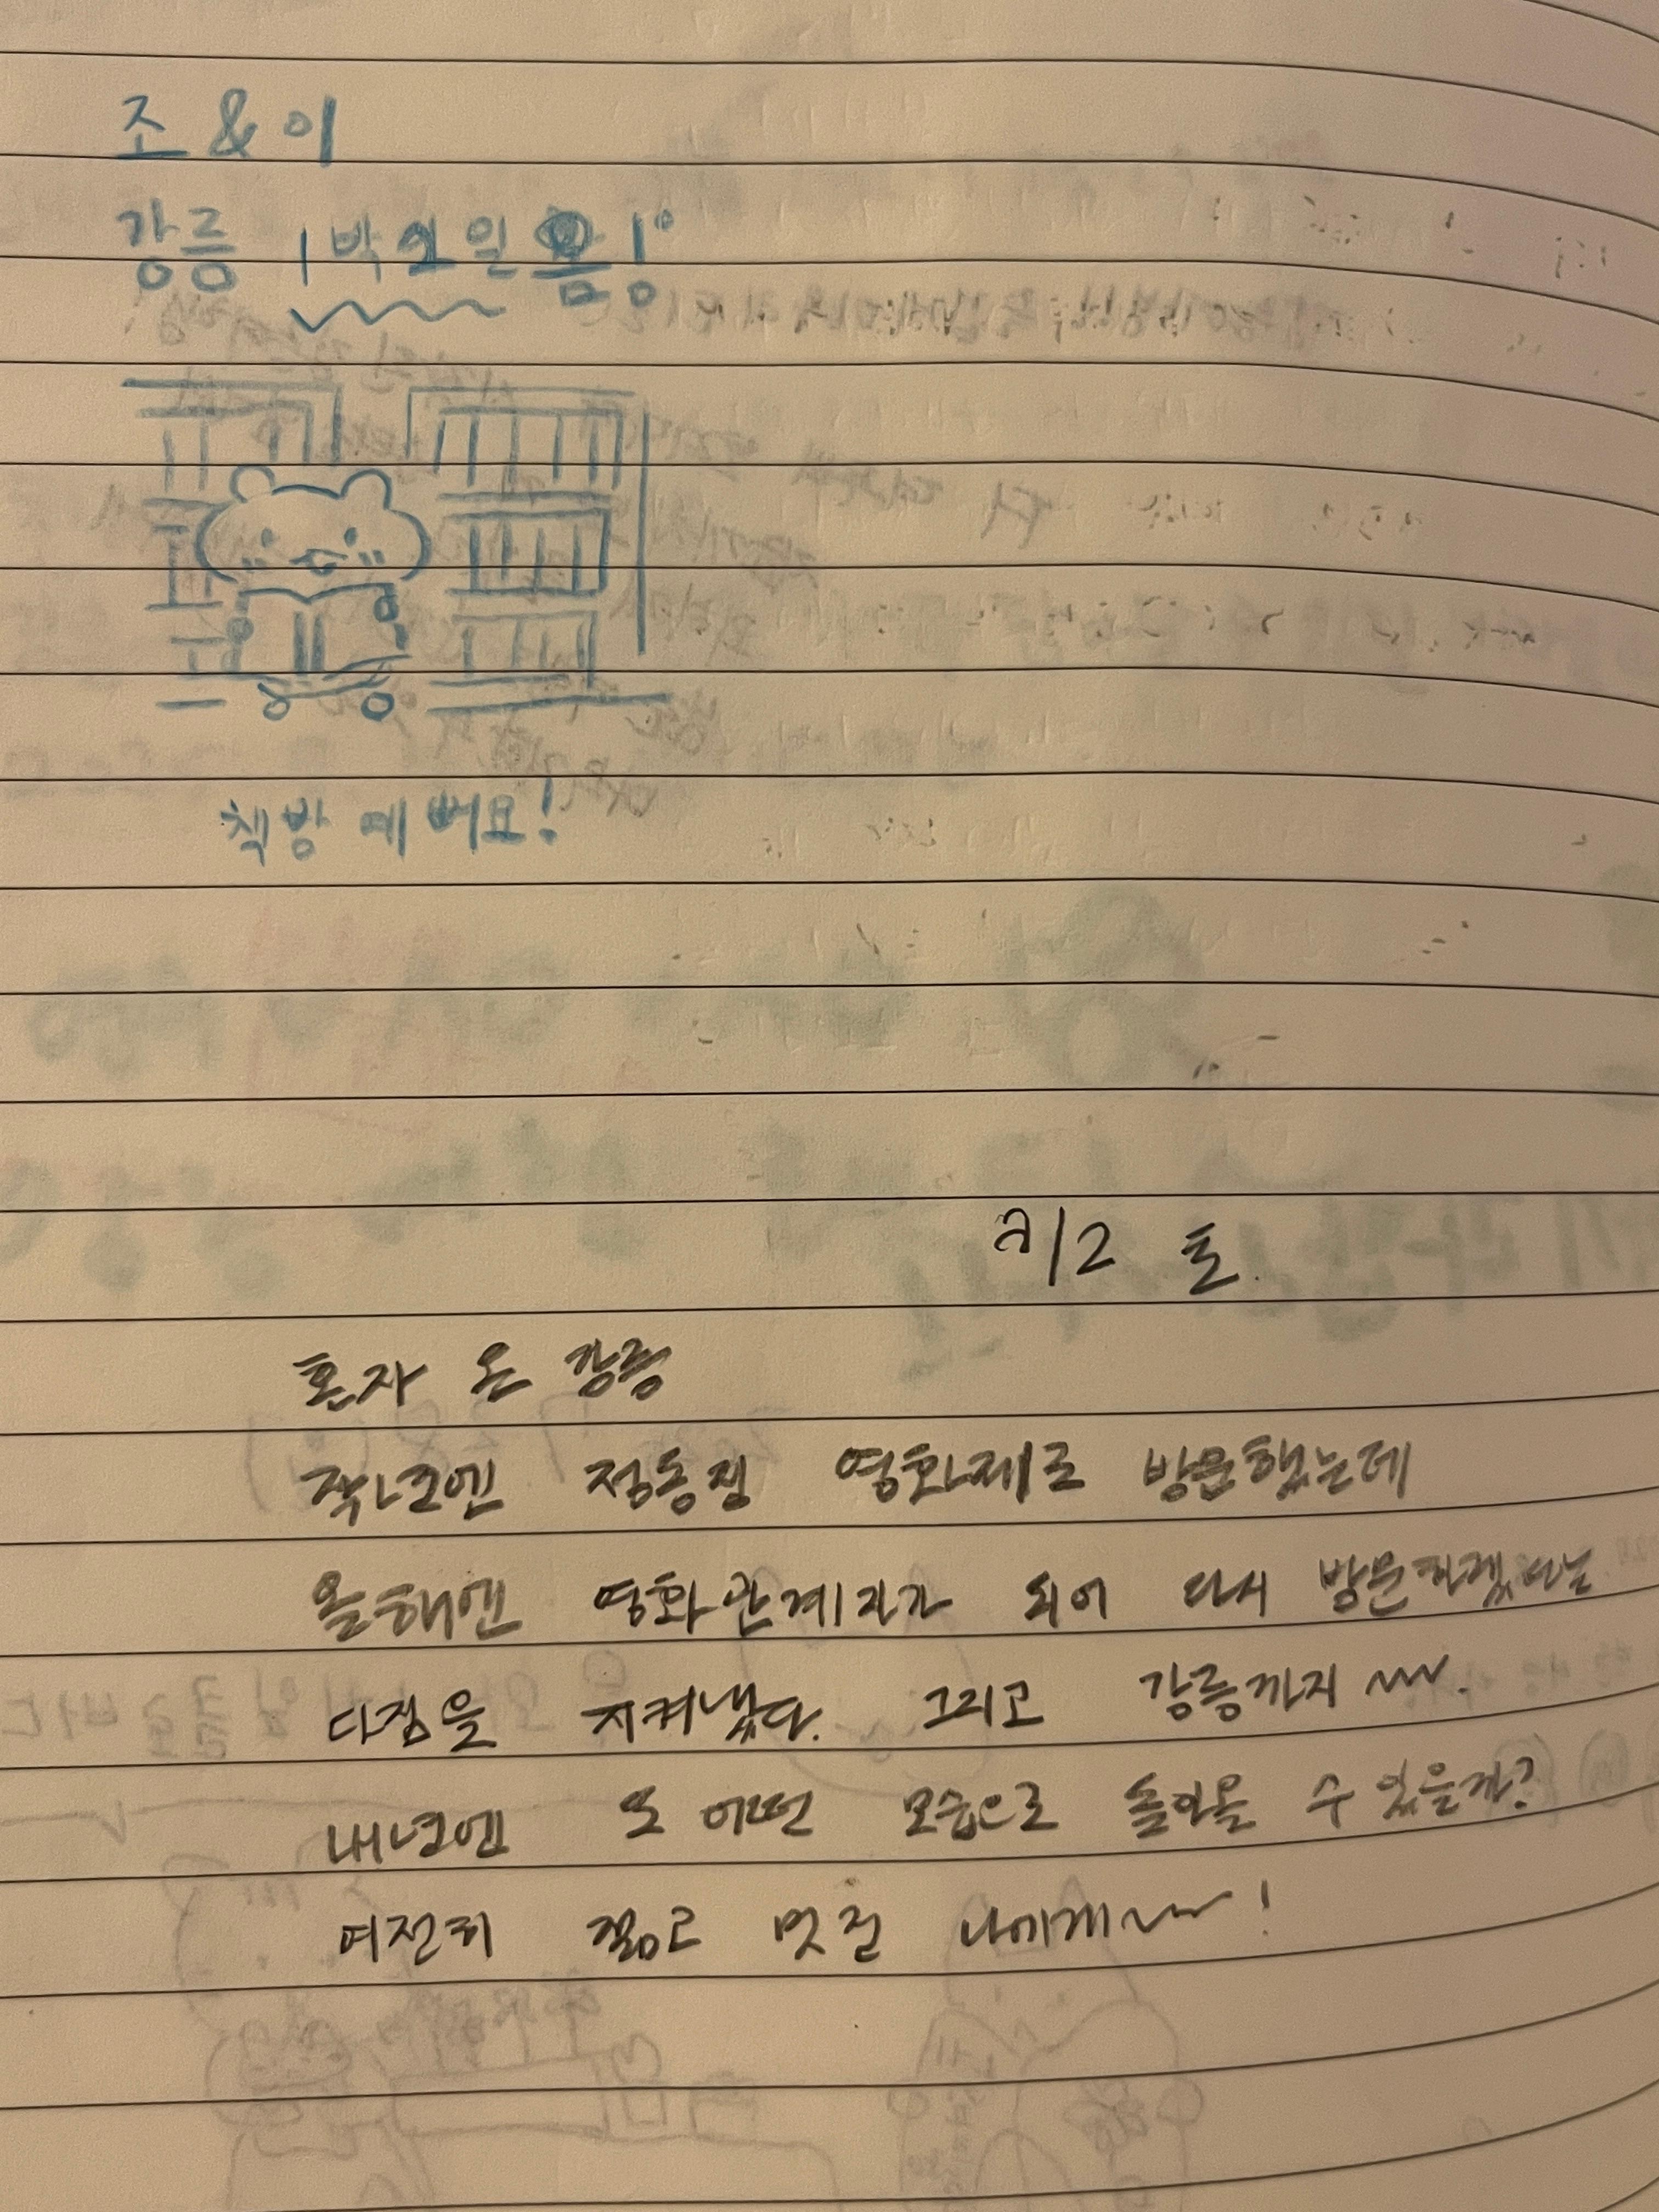 조 & 이
강릉 1박2일 옴!
책방 예뻐요!
8/2 토.
혼자 온 강릉
작년엔 정동진 영화제로 방문했는데
올해엔 영화관계자가 되어 다시 방문하겠다는
다짐을 지켜냈다. 그리고 강릉까지 ~~.
내년엔 또 어떤 모습으로 돌아올 수 있을까?
여전히 젊고 멋진 나에게~~!